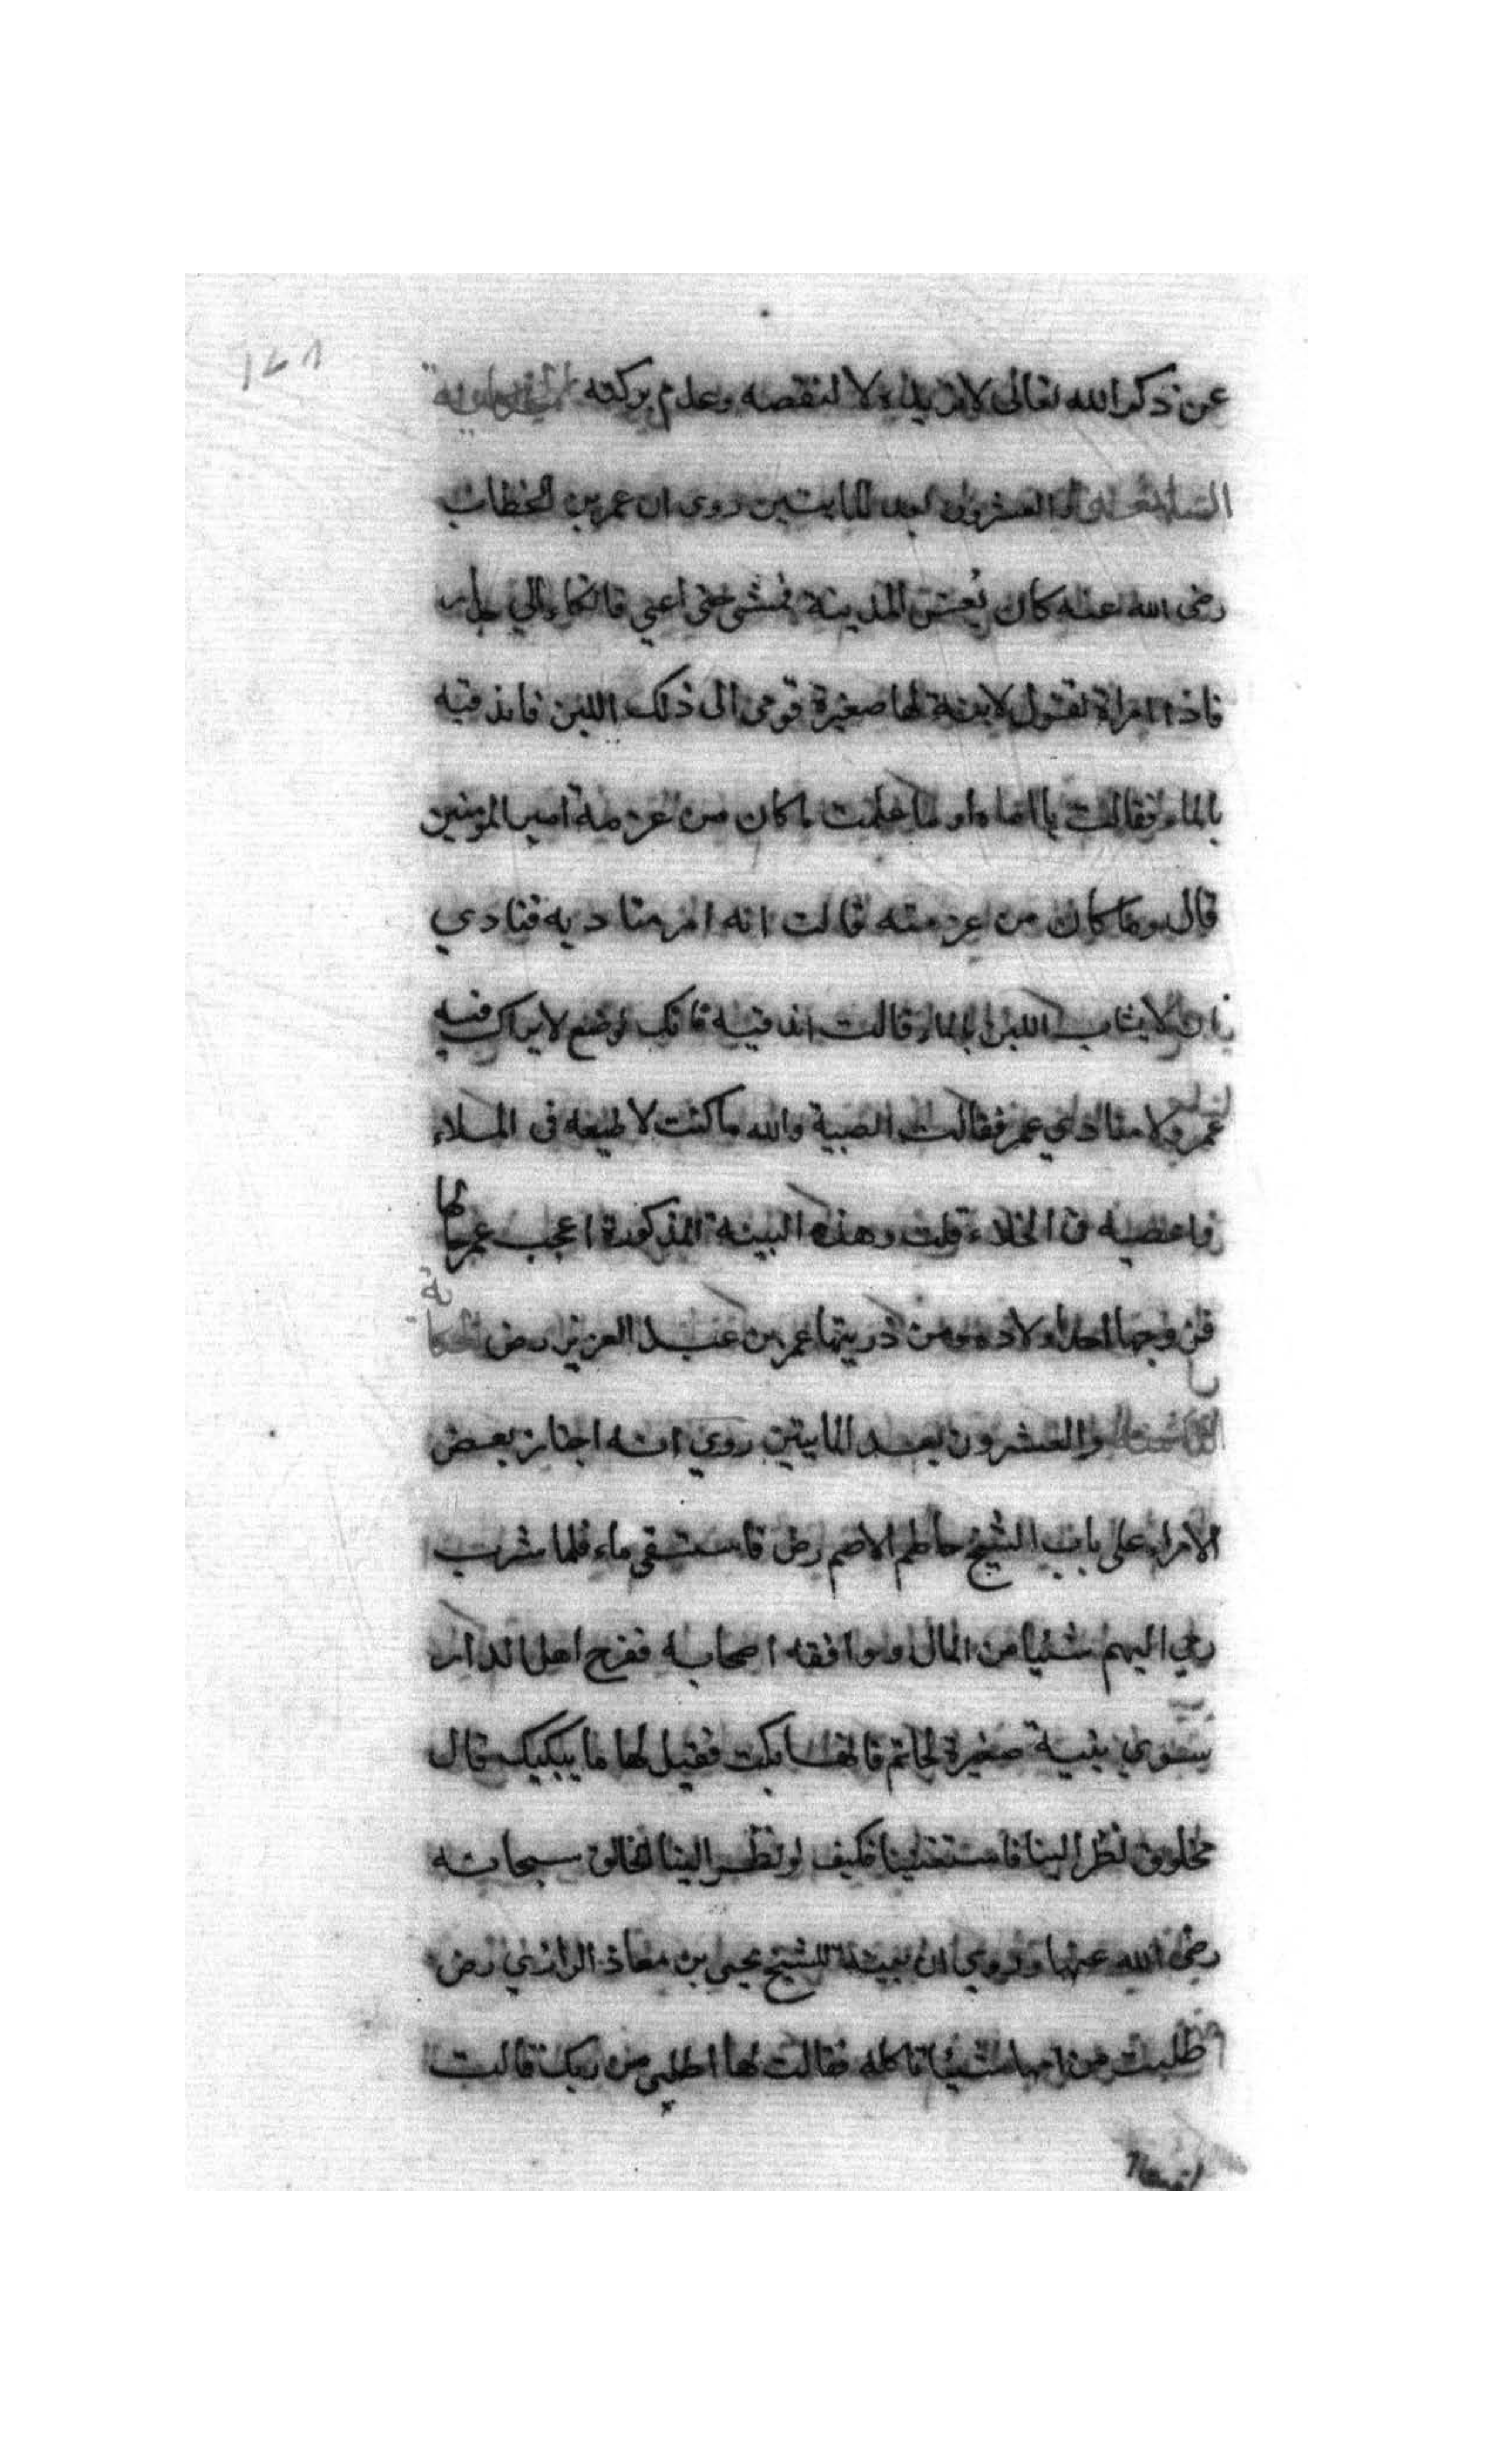 عن ذكر الله تعالى لا تزيله ولا لنقصه وعدم بركته الحكاية
السابعة والعشرون بعد المايتين روى ان عمر بن الخطاب
رضى الله عنه كان يعس المدينة فمشى حتى اعيى فاتكاء الي جدار
فاذا امراة تقول لابنة لها صغيرة قومى الى ذلك اللبن فامذقيه
بالماء فقالت يا اماه او ما علمت ما كان من عزمة امير المومنين
قال وما كان من عزمته قالت انه امر مناديه فنادي
ان لا يشاب اللبن بالماء قالت امذقيه فانك بموضع لا يراك فيه
عمر ولا منادي عمر فقالت الصبية والله ما كنت لاطيعه في الملاء
واعصيه فى الخلاء قلت وهذه البينة المذكورة اعجب عمر بها
فزوجها احد اولاده ومن ذريتها عمر بن عبد العزيز رض الحكاية
الثامنة والعشرون بعد المايتين روي انه اجتاز بعض
الامراء على باب الشيخ حاطم الاصم رض فاستسقى ماء فلما شرب
رمي اليهم شئيا من المال ووافقه اصحابه ففرح اهل الدار
سوي بنية صغيرة لحاتم فانها بكت فقيل لها ما يبكيك قال
مخلوق نظر الينا فاستغنينا فكيف لو نظر الينا الخالق سبحانه
رضى الله عنها وروي ان بينة للشيخ يحيى بن معاذ الرازي رض
طلبت من امها شئيا تاكله فقالت لها اطلبي من ربك قالت